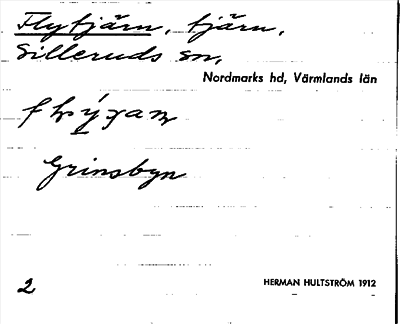 Flytjärn, tjärn,
Silleruds sn,
Nordmarks hd, Värmlands län
Grinsbyn
2
HERMAN HULTSTRÖM 1912